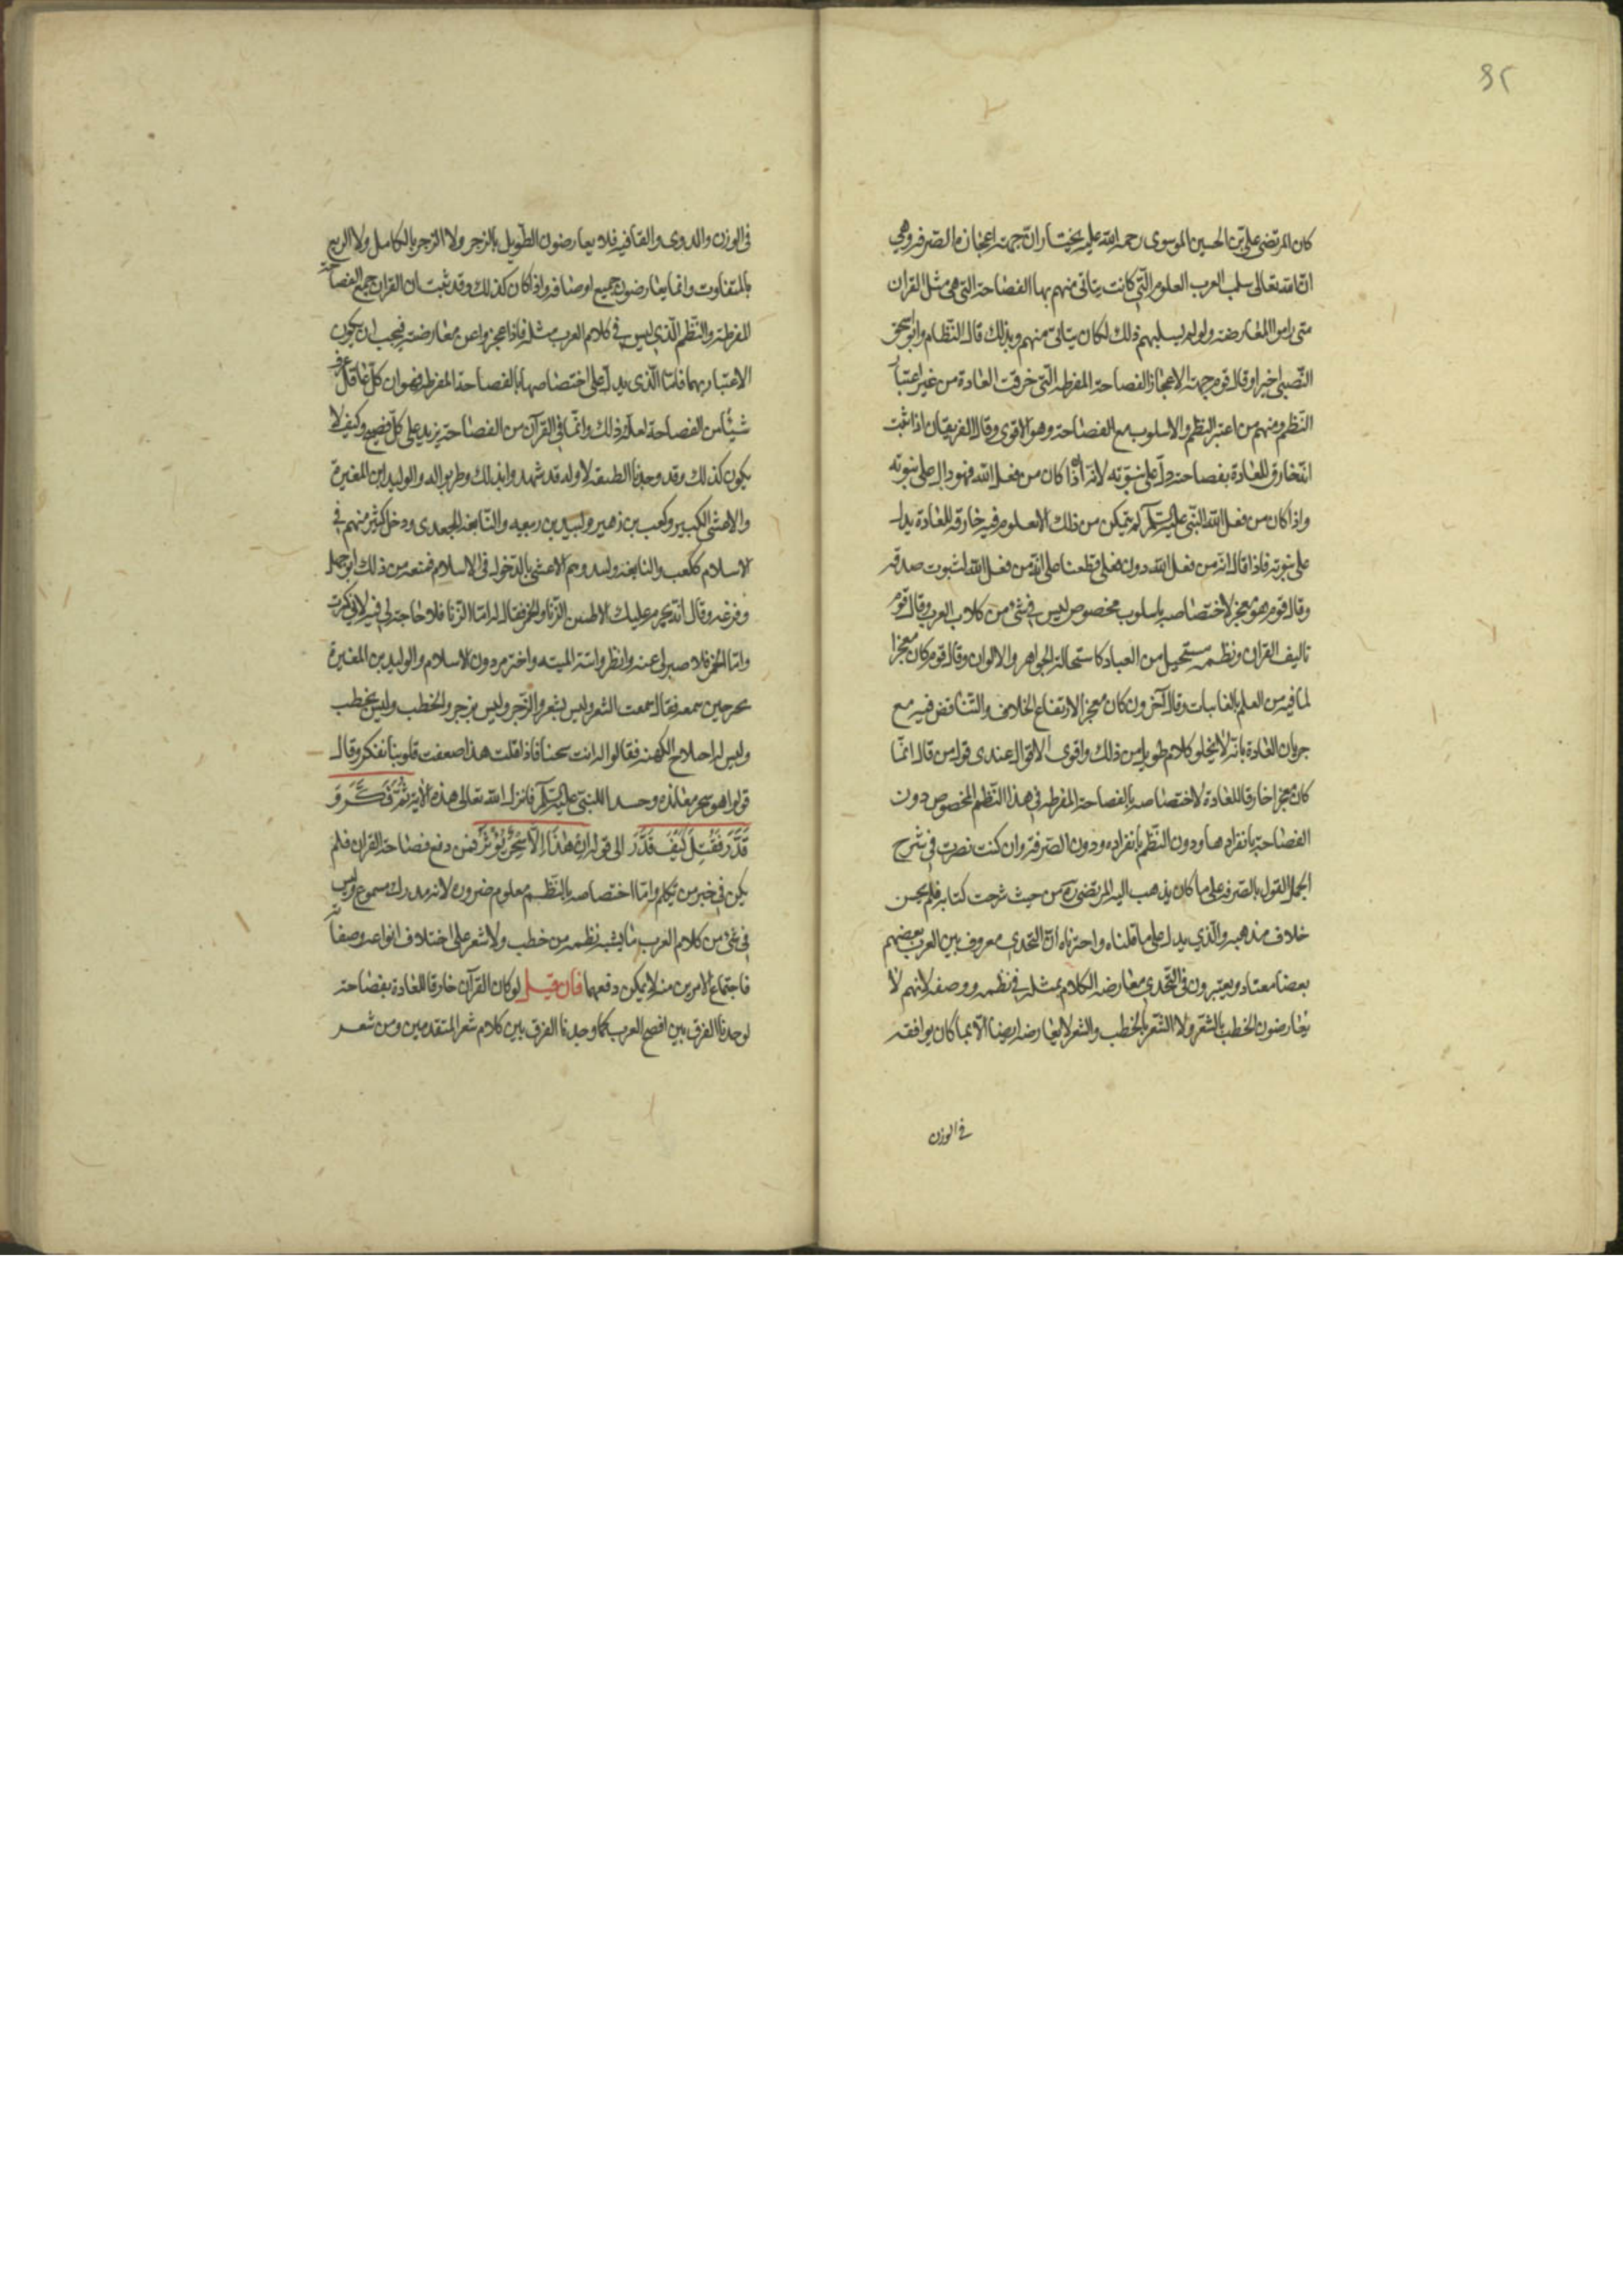 ٤٢
كان المرتضى على بن الحسين الموسوى رحمة الله عليه يختار ان جهة اعجازه الصرفه وهى
ان الله تعالى سلب العرب العلوم التي كانت يتاتى منهم بها الفصاحة التي هى مثل القران
متى راموا المعارضة ولو لم يسلبهم ذلك لكان يتاتى منهم وبذلك قال النظام وابو اسحق
النصيبى اخيرا وقال قوم جهة الاعجاز الفصاحة المفرطه التي خرقت العادة من غير اعتبار
النظم ومنهم من اعتبر النظم والاسلوب مع الفصاحة وهو الاقوى وقال الفريقان اذا ثبت
انه خارق للعادة بفصاحته دل على نبوته لانه اذا كان من فعل الله فهو دال على نبوته
واذا كان من فعل النبى عليه السلم لم يتمكن من ذلك الا لعلوم فيه خارقه للعادة يدل
على نبوته فاذا قال انه من فعل الله دون فعلى قطعنا على انه من فعل الله لثبوت صدقه
وقال قوم هو معجز لاختصاصه باسلوب مخصوص ليس في شئ من كلام العرب وقال قوم
تاليف القران ونظمه مستحيل من العباد كاستحالة الجواهر والالوان وقال قوم كان معجزا
لما فيه من العلم بالغايبات وقال آخرون كان معجزا لارتفاع الخلاف والتناقض فيه مع
جريان العادة بانه لا يخلو كلام طويل من ذلك واقوى الاقوال عندى قول من قال انما
كان معجزا خارقا للعادة لاختصاصه بالفصاحة المفرطه في هذا النظم المخصوص دون
الفصاحة بانفرادها ودون النظم بانفراده ودون الصرفة وان كنت نصرت في شرح
الجمل القول بالصرفه على ما كان يذهب اليه المرتضى ره من حيث شرحت كتابه فلم يحسن
خلاف مذهبه والذي يدل على ما قلناه واخترناه ان التحدى معروف بين العرب بعضهم
بعضا معتاد ويعتبرون في التحدي معارضة الكلام بمثله في نظمه ووصفه لانهم لا
يعارضون الخطب بالشعر ولا الشعر بالخطب والشعر لا يعارضه ايضا الا بما كان يوافقه
في الوزن
فى الوزن والروى والقافيه فلا يعارضون الطويل بالرجز ولا الرجز بالكامل ولا السريع
بالمتقارب وانما يعارضون جميع اوصافه واذا كان كذلك وقد ثبت ان القران جمع الفصاحة
المفرطة والنظم الذي ليس في كلام العرب مثله فاذا عجزوا عن معارضته فيجب ان يكون
الاعتبار بهما فاما الذى يدل على اختصاصها بالفصاحة المفرطه فهو ان كل عاقل عرف
شيئا من الفصاحة يعلم ذلك وانما في القرآن من الفصاحة يزيد على كل فصيح وكيف لا
يكون كذلك وقد وجدنا الطبقه الاوله قد شهدوا بذلك وطربوا له والوليد ابن المغيرة
والاعشى الكبير وكعب بن زهير ولبيد بن ربيعه والنابغه الجعدى ودخل كثير منهم في
الاسلام ككعب والنابغه ولبيد وهم الاعشى بالدخول فى الاسلام فمنعه من ذلك ابو جهل
وفزعه وقال انه يحرم عليك الاطيبين الزنا والخمر فقال له اما الزنا فلا حاجة لي فيه لانى كبرت
واما الخمر فلا صبر لى عنه وانظر واتته المنيه واخترم دون الاسلام والوليد بن المغيرة
تحير حين سمعه فقال سمعت الشعر وليس بشعر والرجز وليس برجز والخطب وليس بخطب
وليس له اختلاج الكهنه فقالوا له انت شيخنا فاذا قلت هذا ضعفت قلوبنا ففكر وقال
قولوا هو سحر معاندة وحسدا للنبى عليه السلم فانزل الله تعالى هذه الاية ثم فكر و
قدر فقتل كيف قدر الى قوله ان هذا الا سحر يؤثر فمن دفع فصاحة القران فلم
يكن في حيز من يكلم واما اختصاصه بالنظم معلوم ضرورة لانه مدرك مسموع وليس
في شئ من كلام العرب ما يشبه نظمه من خطب ولا شعر على اختلاف انواعه وصفاته
فاجتماع الامرين منه لا يمكن دفعهما فان قيل لو كان القرآن خارقا للعادة بفصاحته
لوجدنا الفرق بين افصح العرب كما وجدنا الفرق بين كلام شعر المتقدمين ومن شعر